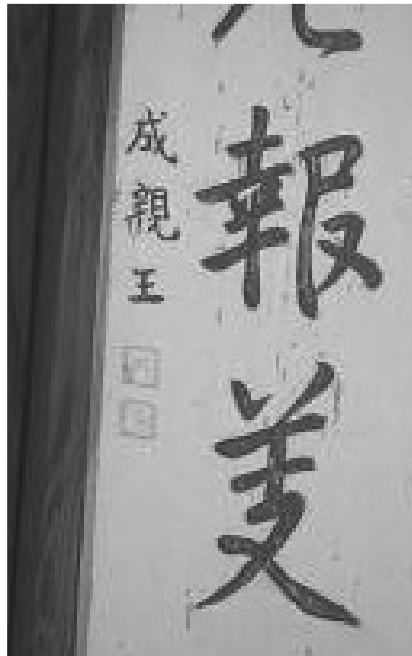 報美
成親王